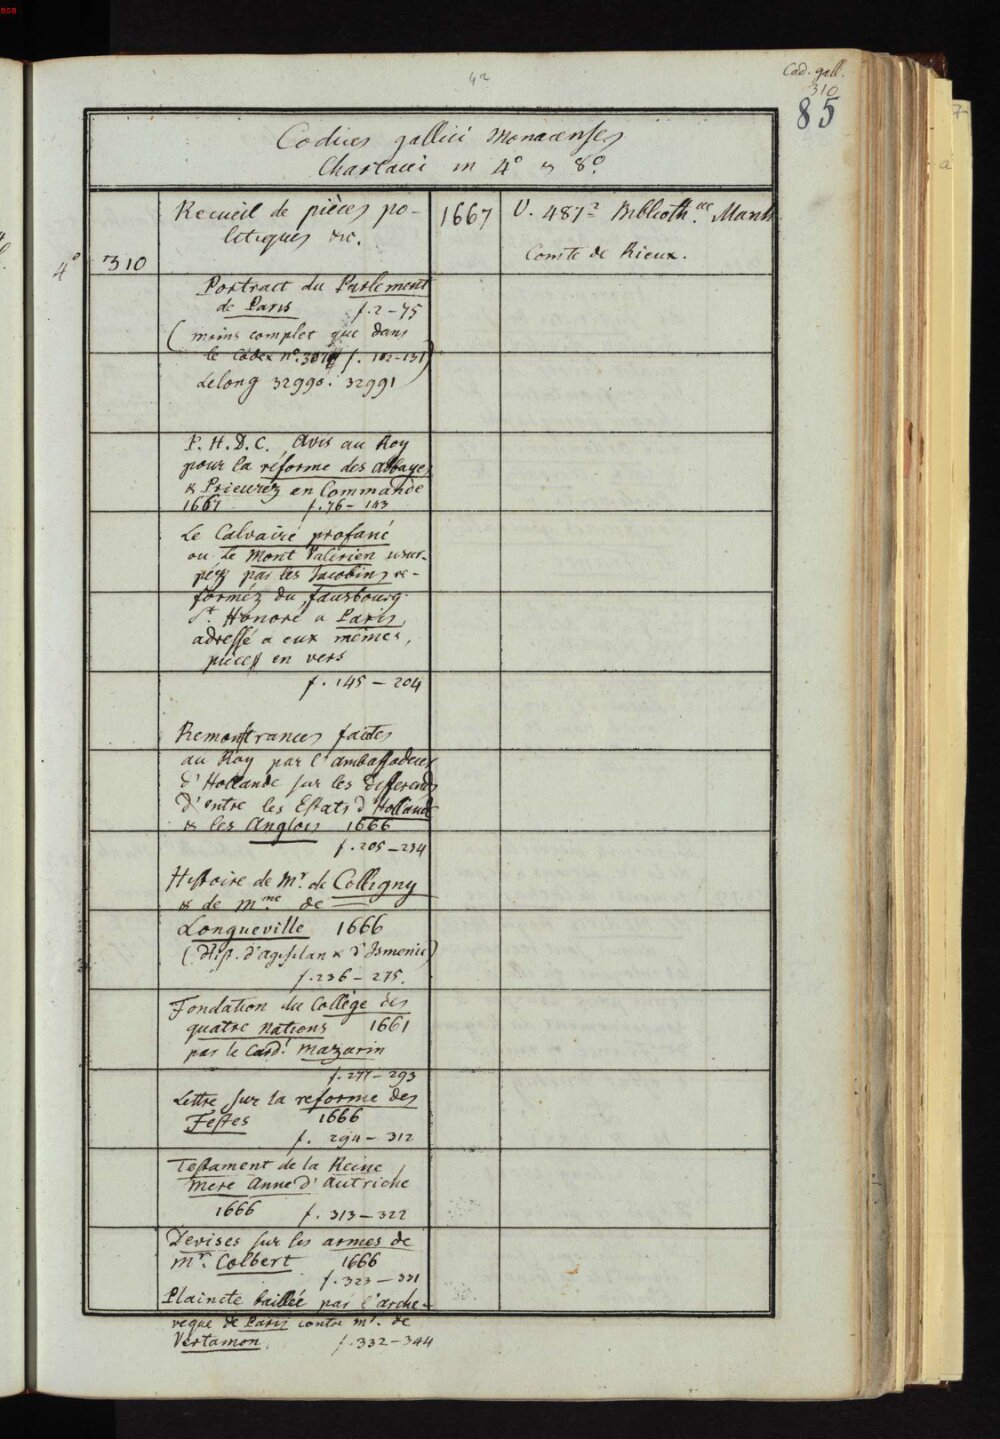 42
Cod. gall.
310
85
Codices gallici Monacenses
Chartacei in 4° & 8°.
4° 310
Recueil de pièces po-
litiques &c.
1667
V. 487² Biblioth.ae Manh.
Comte de Rieux.
Portrait du Parlement
de Paris f. 2-75
(moins complet que dans
le Codex n°. 307 f. 102-131)
Lelong 32990. 32991
P. H. D. C. Avis au Roy
pour la réforme des Abbayes
& Prieurez en Commande
1667 f. 76- 143
Le Calvaire profané
ou le Mont Valérien usur-
péz par les Jacobins re-
forméz du fausbourg
St. Honoré a Paris,
adressé a eux mêmes,
pièces en vers
f. 145 - 204
Remonstrances faites
au Roy par l'ambassadeur
d'Hollande sur les differends
d'entre les Estats d'Hollande
& les Anglois 1666
f. 205-234
Histoire de Mr. de Colligny
& de Mme de
Longueville 1666
(Hist. d'agesilan & d'Ismenie)
f. 236- 275.
Fondation du Collège des
quatre Nations 1661
par le Card.l Mazarin
f. 277-293
Lettre sur la reforme des
Festes 1666
f. 294- 312
Testament de la Reine
Mere Anne d'Autriche
1666 f. 313-322
Devises sur les armes de
Mr. Colbert 1666
f. 323-331
Plaincte baillée par l'arche-
veque de Paris contre Mr. de
Vertamon. f. 332-344